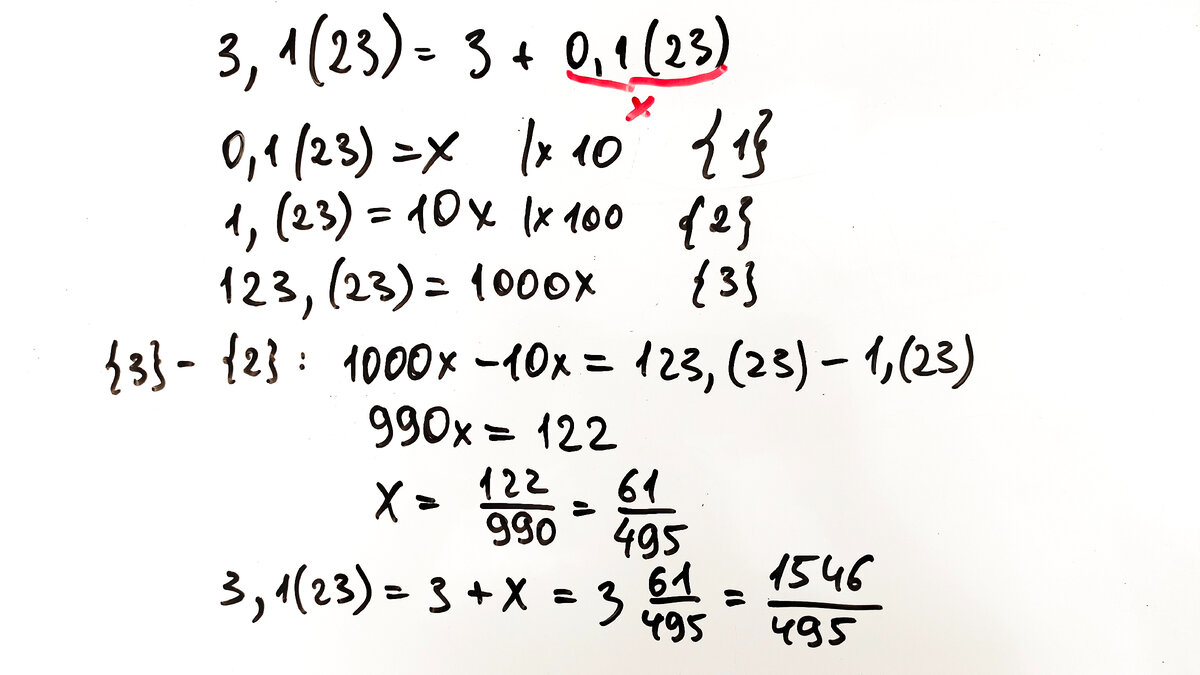 3,1(23) = 3 + 0,1(23)
x
0,1(23) = x |x 10 {1}
1,(23) = 10x |x 100 {2}
123,(23) = 1000x {3}
{3} - {2} : 1000x - 10x = 123,(23) - 1,(23)
990x = 122
x = 122/990 = 61/495
3,1(23) = 3 + x = 3 61/495 = 1546/495